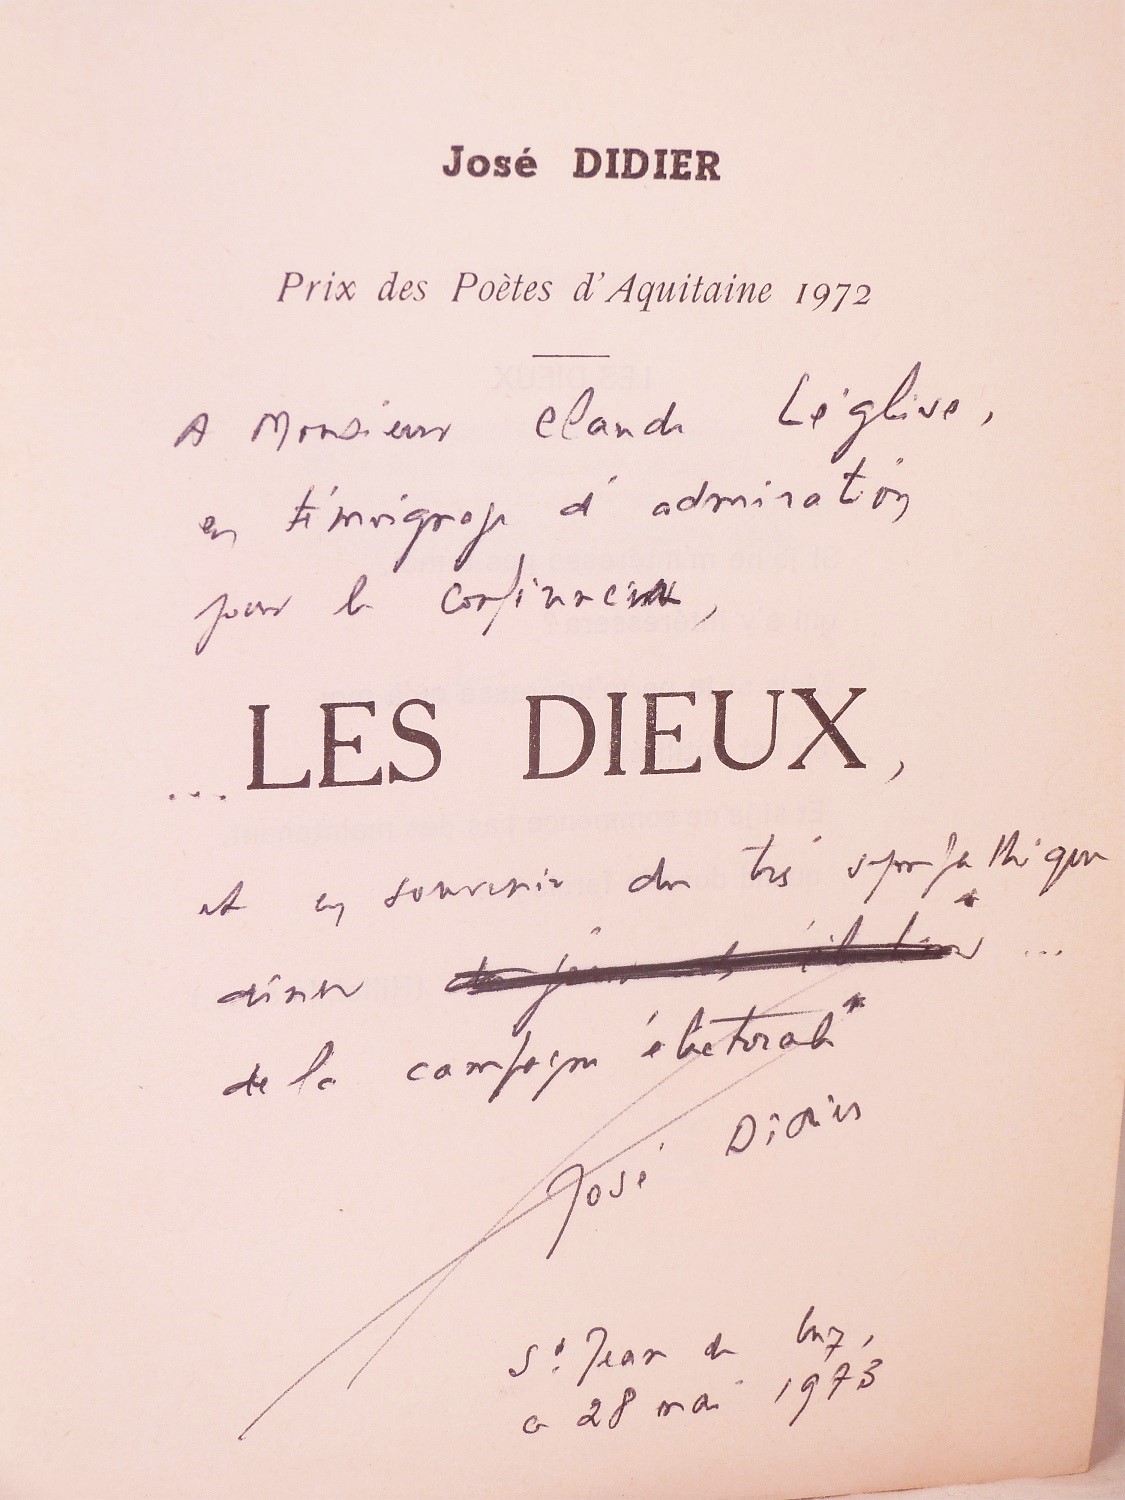 José DIDIER
Prix des Poètes d'Aquitaine 1972
A Monsieur Claude Léglise,
en témoignage d'admiration
pour le
... LES DIEUX,
et en souvenir du très sympathique
dîner ...
de la campagne électorale*
José Didier
St Jean de Luz,
a 28 mai 1973